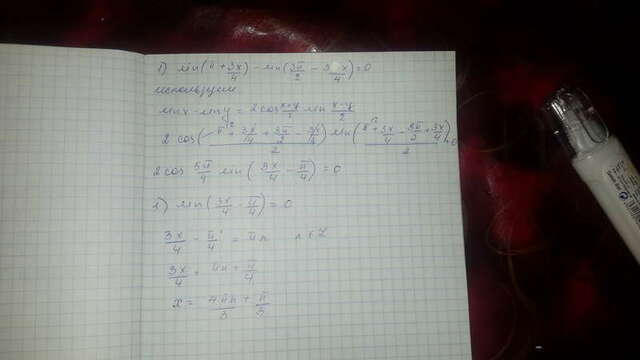 1) sin(π + 3x/4) - sin(3π/2 - 3x/4) = 0
используем
sin x - sin y = 2 cos (x+y)/2 sin (x-y)/2
2 cos (π + 3x/4 + 3π/2 - 3x/4)/2 sin (π + 3x/4 - 3π/2 + 3x/4)/2 = 0
2 cos 5π/4 sin (3x/4 - π/4) = 0
2) sin(3x/4 - π/4) = 0
3x/4 - π/4 = πn n ∈ Z
3x/4 = πn + π/4
x = 4πn/3 + π/3